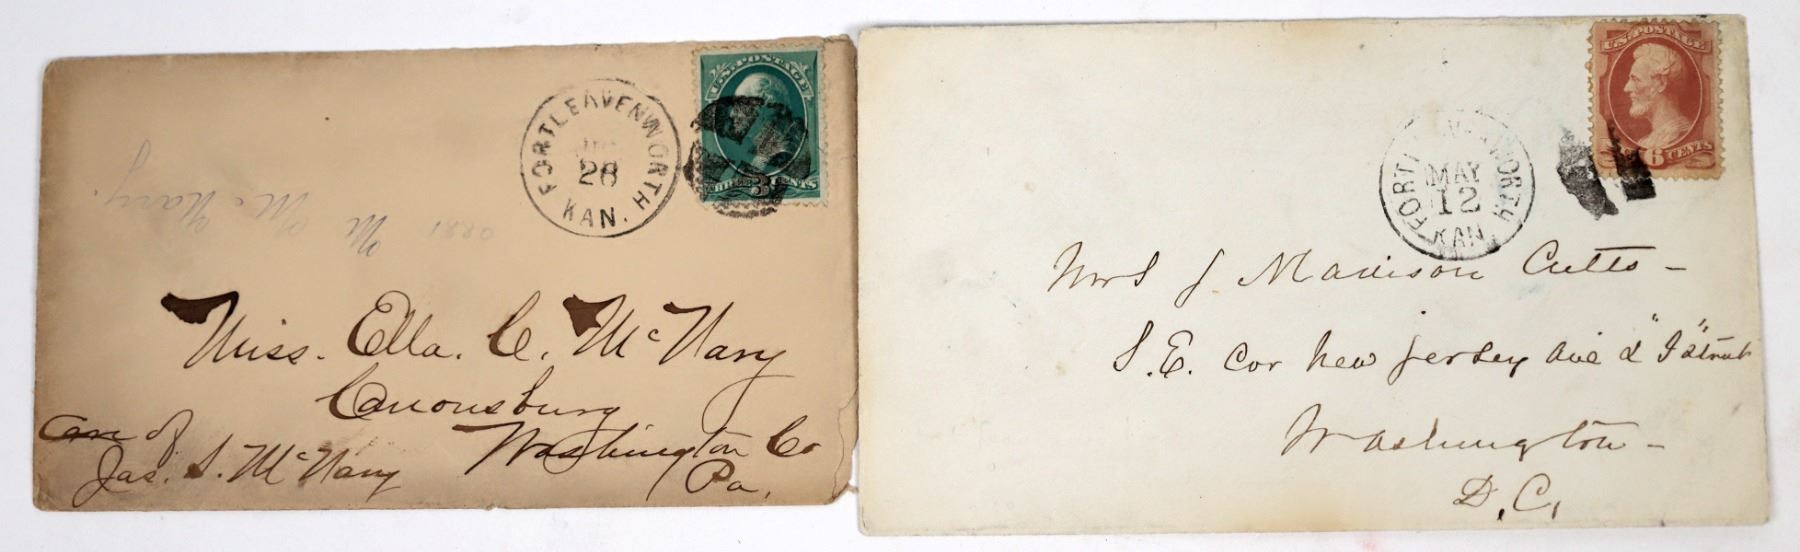 U.S. POSTAGE
THREE 3 CENTS
FORT LEAVENWORTH
28
KAN.
1880
Mc Nary.
Miss. Ella. C. McNary
Canonsburg
Washington Co
Pa.
Care of
Jas. S. McNary
U.S. POSTAGE
6 CENTS
FORT LEAVENWORTH
MAY
12
KAN.
Mrs J Madison Cutts –
S. E. Cor New Jersey Ave & "I" Street
Washington –
D. C.